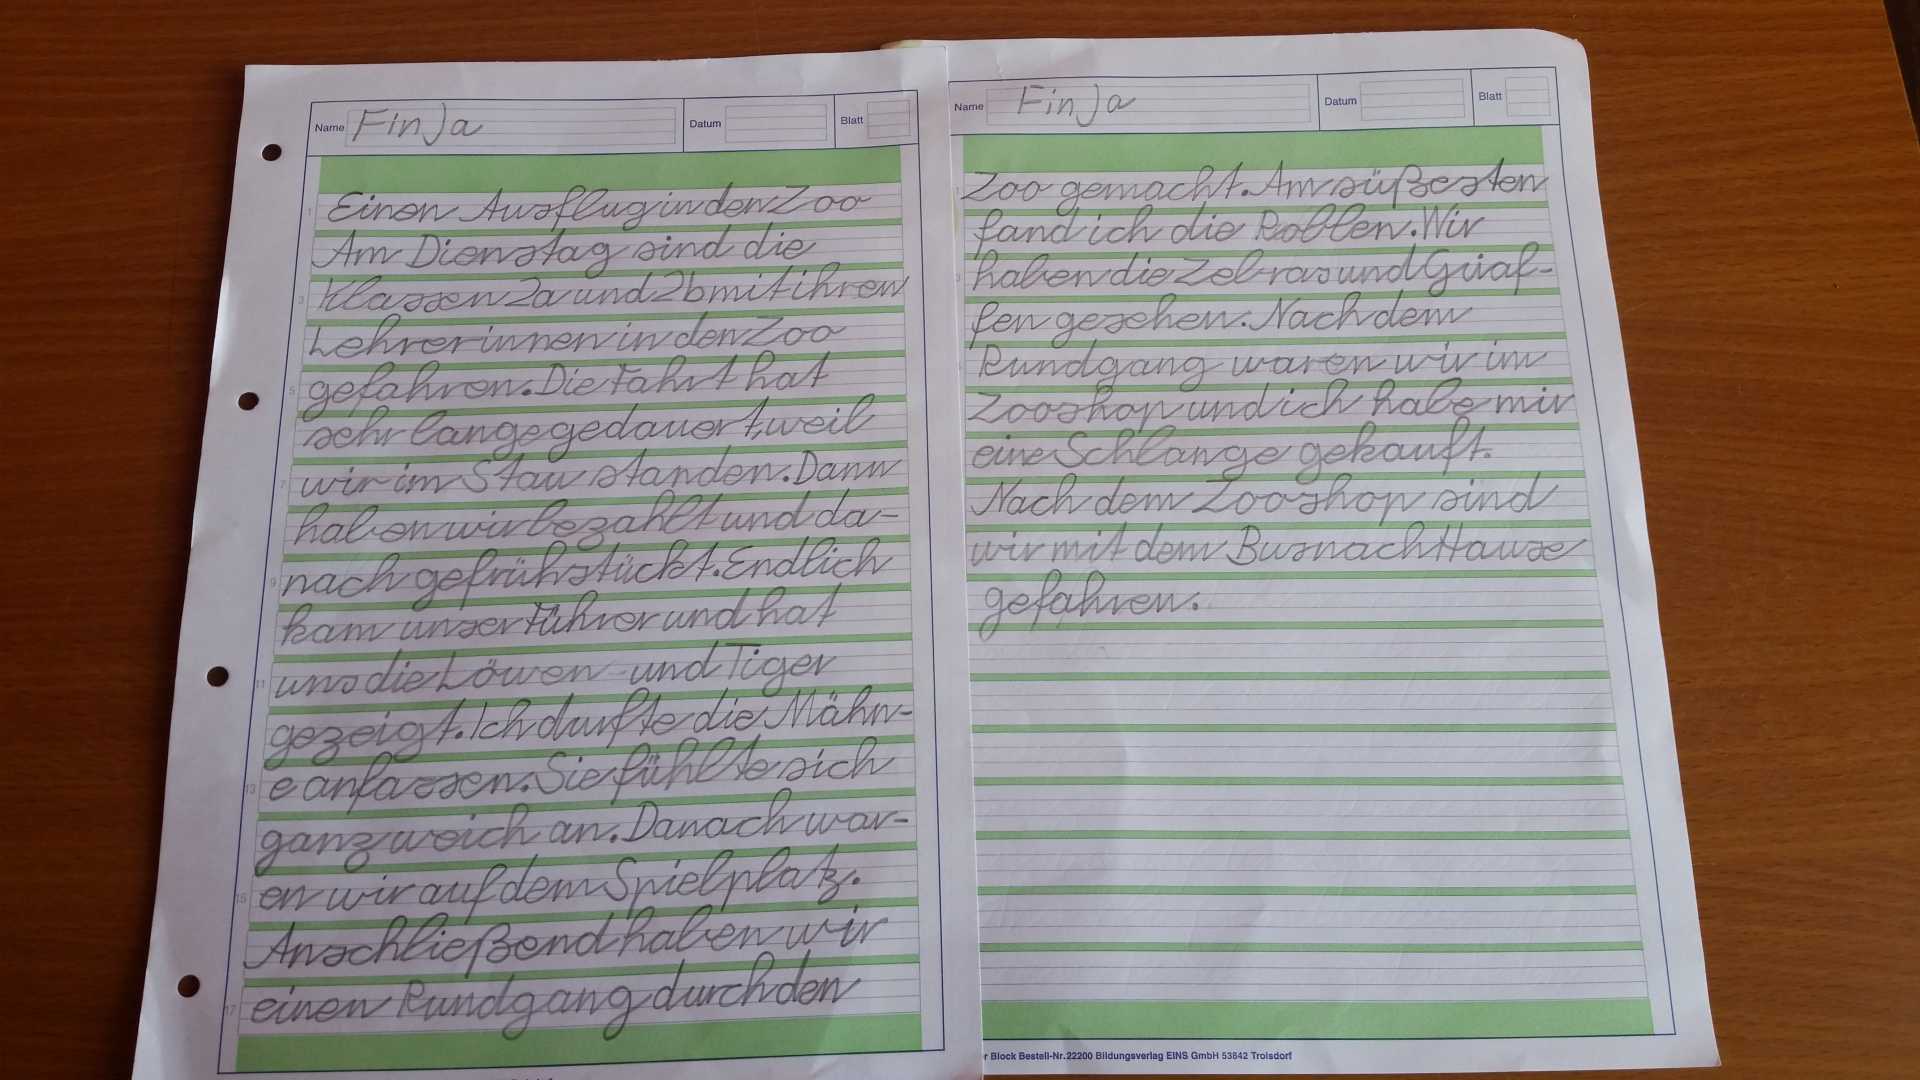 Name Finja Datum Blatt
Einen Ausflug in den Zoo
Am Dienstag sind die
Klassen 2a und 2b mit ihren
Lehrerinnen in den Zoo
gefahren. Die Fahrt hat
sehr lange gedauert, weil
wir im Stau standen. Dann
haben wir bezahlt und da-
nach gefrühstückt. Endlich
kam unser Führer und hat
uns die Löwen und Tiger
gezeigt. Ich durfte die Mähn-
e anfassen. Sie fühlte sich
ganz weich an. Danach war-
en wir auf dem Spielplatz.
Anschließend haben wir
einen Rundgang durch den
Name Finja Datum Blatt
Zoo gemacht. Am süßesten
fand ich die Robben. Wir
haben die Zebras und Giraf-
fen gesehen. Nach dem
Rundgang waren wir im
Zooshop und ich habe mir
eine Schlange gekauft.
Nach dem Zooshop sind
wir mit dem Bus nach Hause
gefahren.
r Block Bestell-Nr. 22200 Bildungsverlag EINS GmbH 53842 Troisdorf